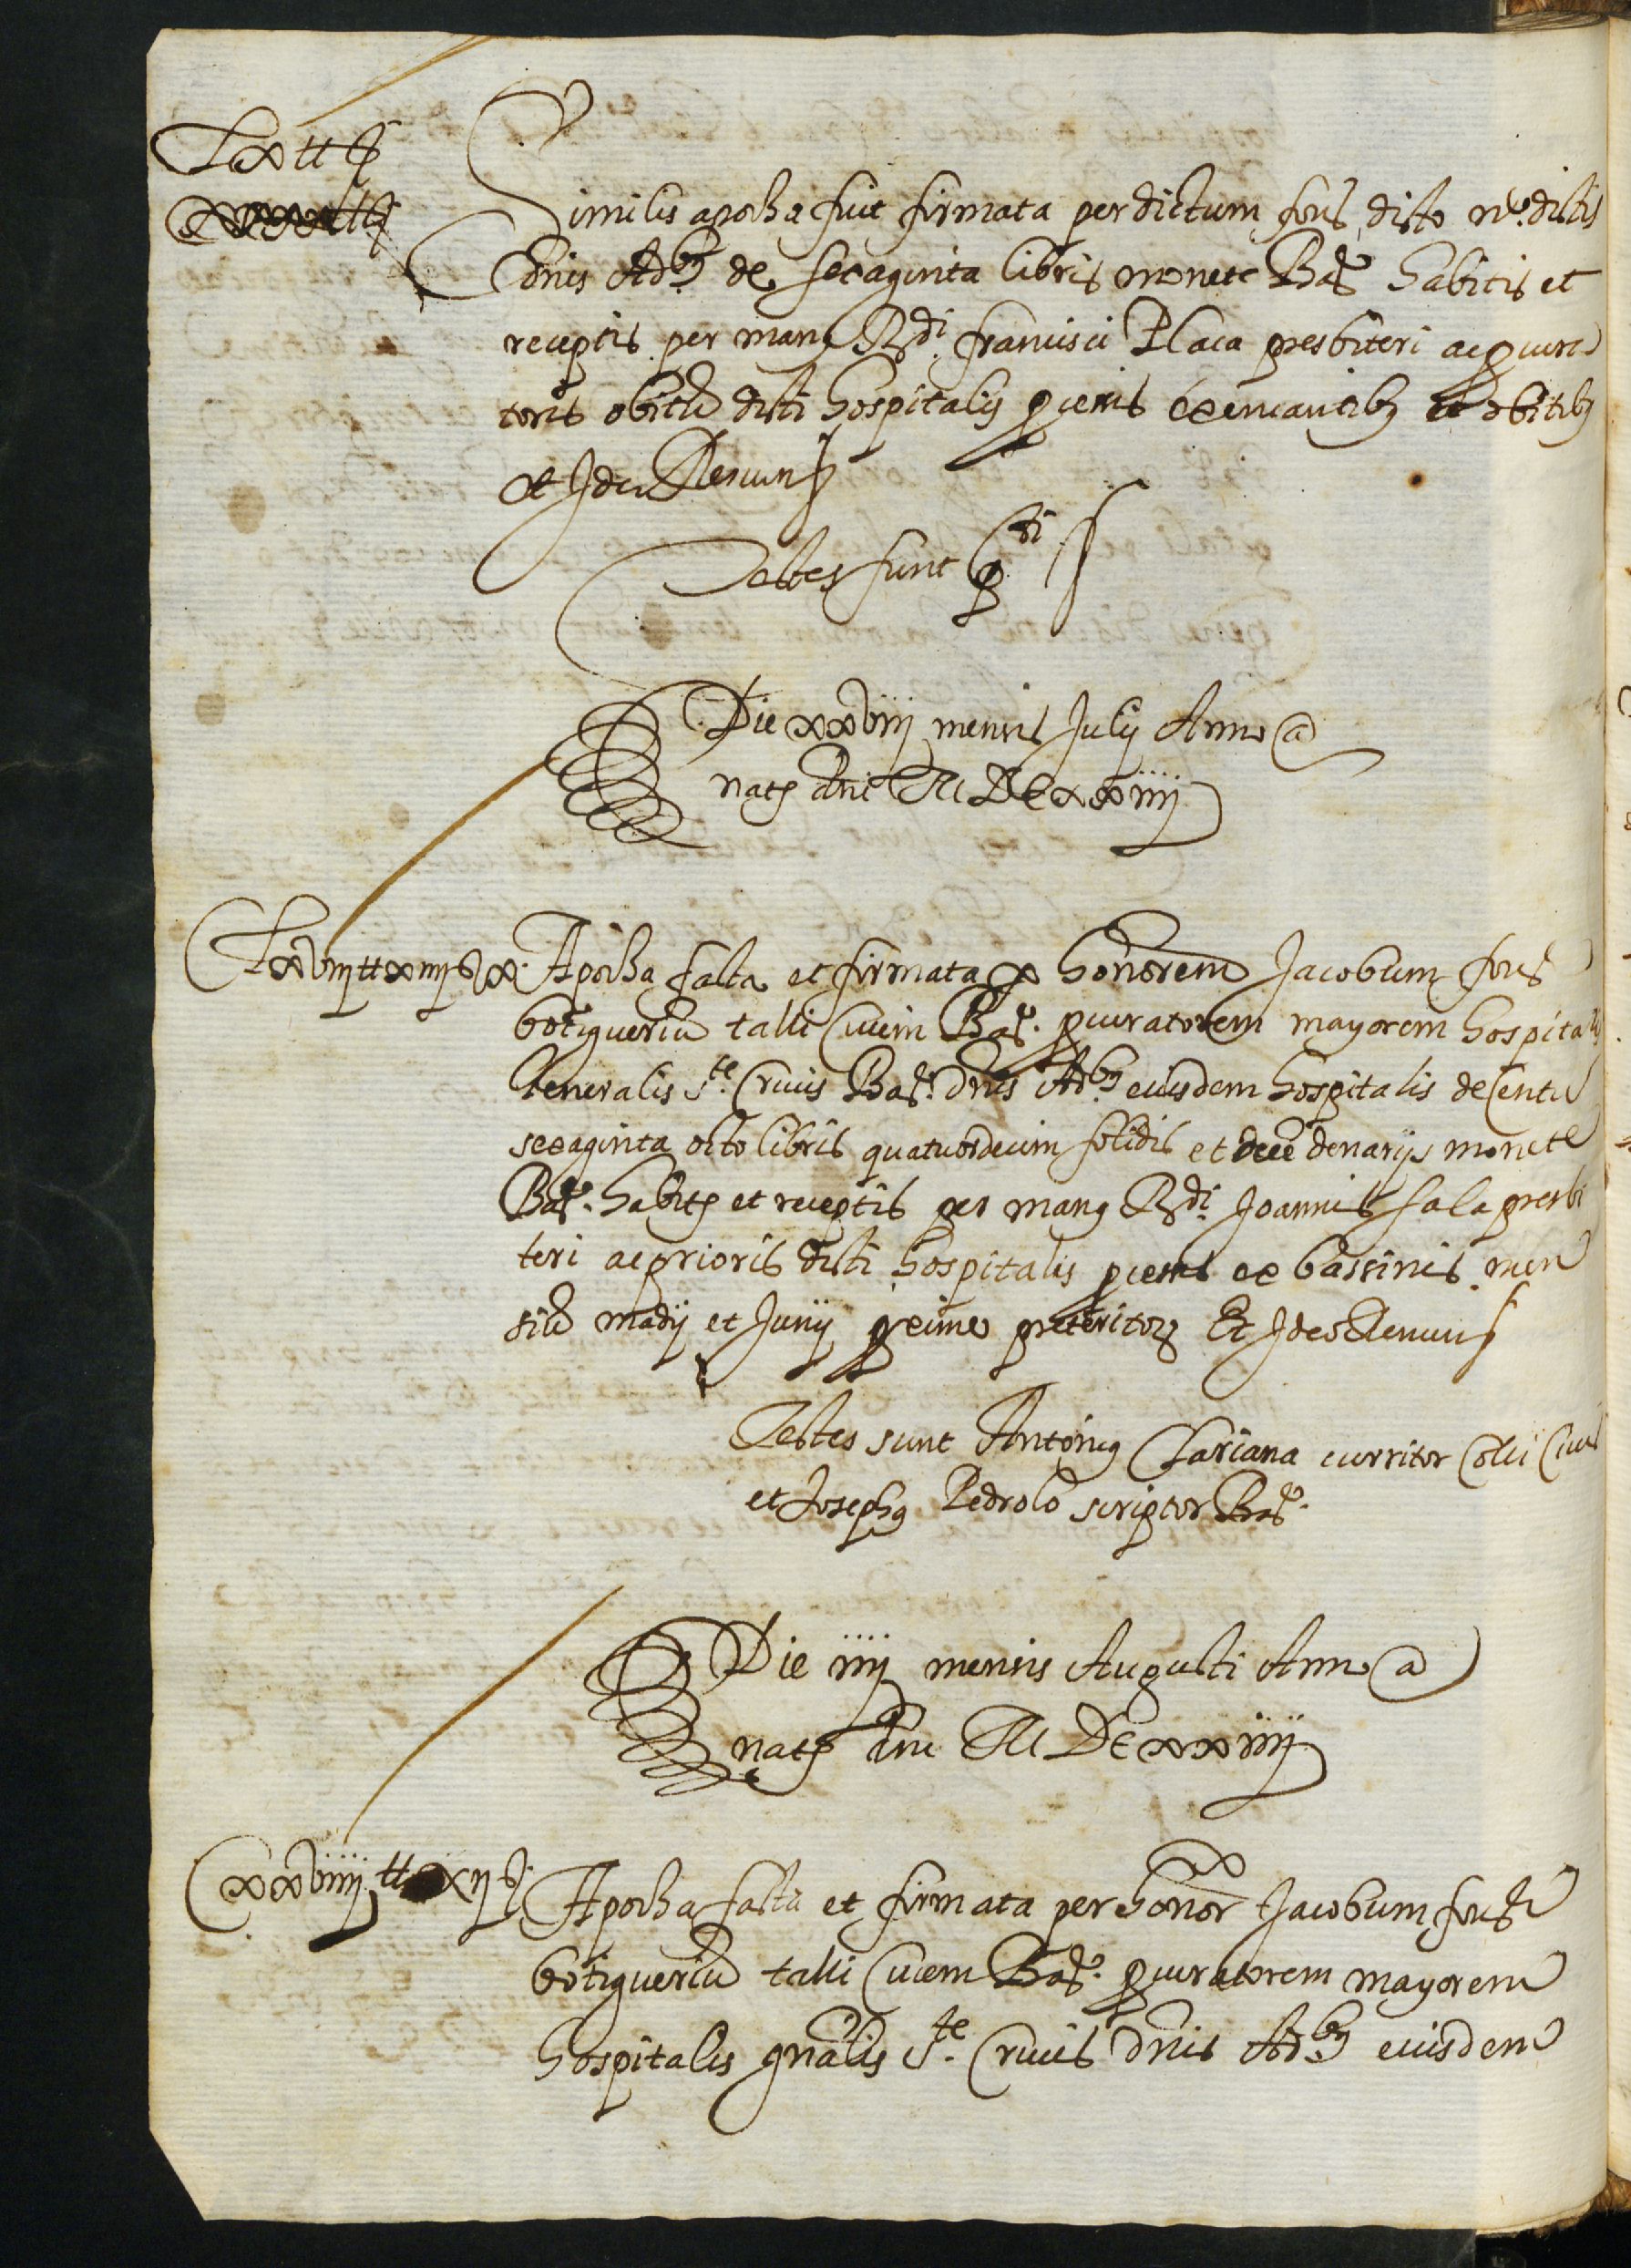 Lx ₶ ß
Similis apocha fuit firmata per dictum fous dicto no. dictis
dnis Adbz de sexaginta libris monete Barne habitis et
receptis per manz Rdi francisci Plaça presbiteri ac procura
toris obituũ dicti hospitalis proceñs ex encantibz et obitibz
et Ideo Renuns
Testes sunt pti
Die xxviiij mensis Julij Anno a
natz dni M DC xxiiij
CLxviij ₶ xiiij ß x. Apocha facta et firmata p honorem Jacobum fous
botigueriũ talli civem Barne. procuratorem mayorem hospitalis
Generalis Ste. Crucis Barne. dnis Adbz eiusdem hospitalis de Centũ
sexaginta octo libris quatuordecim solidis et decẽ denarijs monete
Barne. habitz et receptis per manz Rdi. Joannis sala presbi
teri ac prioris dicti hospitalis proceñs ex bassinis men
siũ madij et Junij proxime preteritoz Et Ideo Renuns
Testes sunt Antoniz Clariana curritor Colli Civis
et Josephz Pedrolo scriptor Barne.
Die iiij mensis Augusti Anno a
natz dni M DC xxiiij
Cxxviiij ₶ xij ß Apocha facta et firmata per honor Jacobum fous
botigueriũ talli civem Barne. procuratorem mayorem
hospitalis gnalis Ste. Crucis dnis Adbz eiusdem